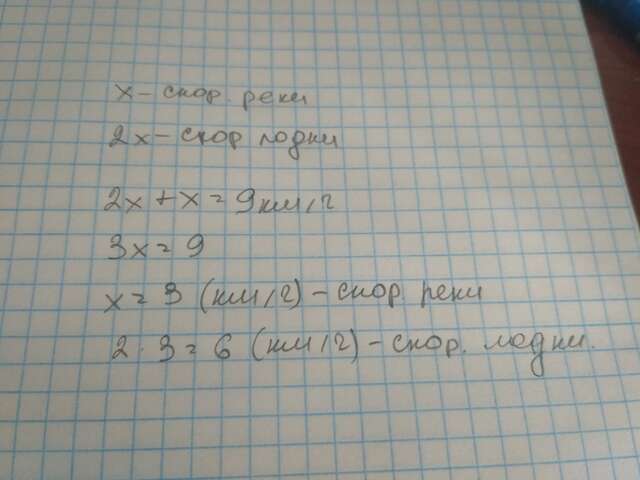 x – скор. реки
2x – скор лодки
2x + x = 9 км/ч
3x = 9
x = 3 (км/ч) – скор. реки
2 · 3 = 6 (км/ч) – скор. лодки.